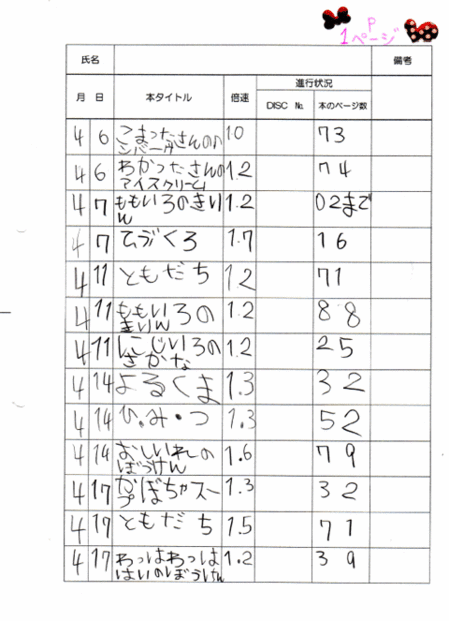 P
1ページ
氏名
備考
月 日 本タイトル 倍速 進行状況
DISC № 本のページ数
4 6 こまったさんの 1.0 73
ンバーグ
4 6 わかったさんの 1.2 74
アイスクリーム
4 7 ももいろのきり 1.2 02まで
ん
4 7 てぶくろ 1.7 16
4 11 ともだち 1.2 71
4 11 ももいろの 1.2 88
きりん
4 11 にじいろの 1.2 25
さかな
4 14 よるくま 1.3 32
4 14 ひ・み・つ 1.3 52
4 14 おしいれの 1.6 79
ぼうけん
4 17 かぼちゃスー 1.3 32
プ
4 17 ともだち 1.5 71
4 17 わっはわっは 1.2 39
はいのぼうけん